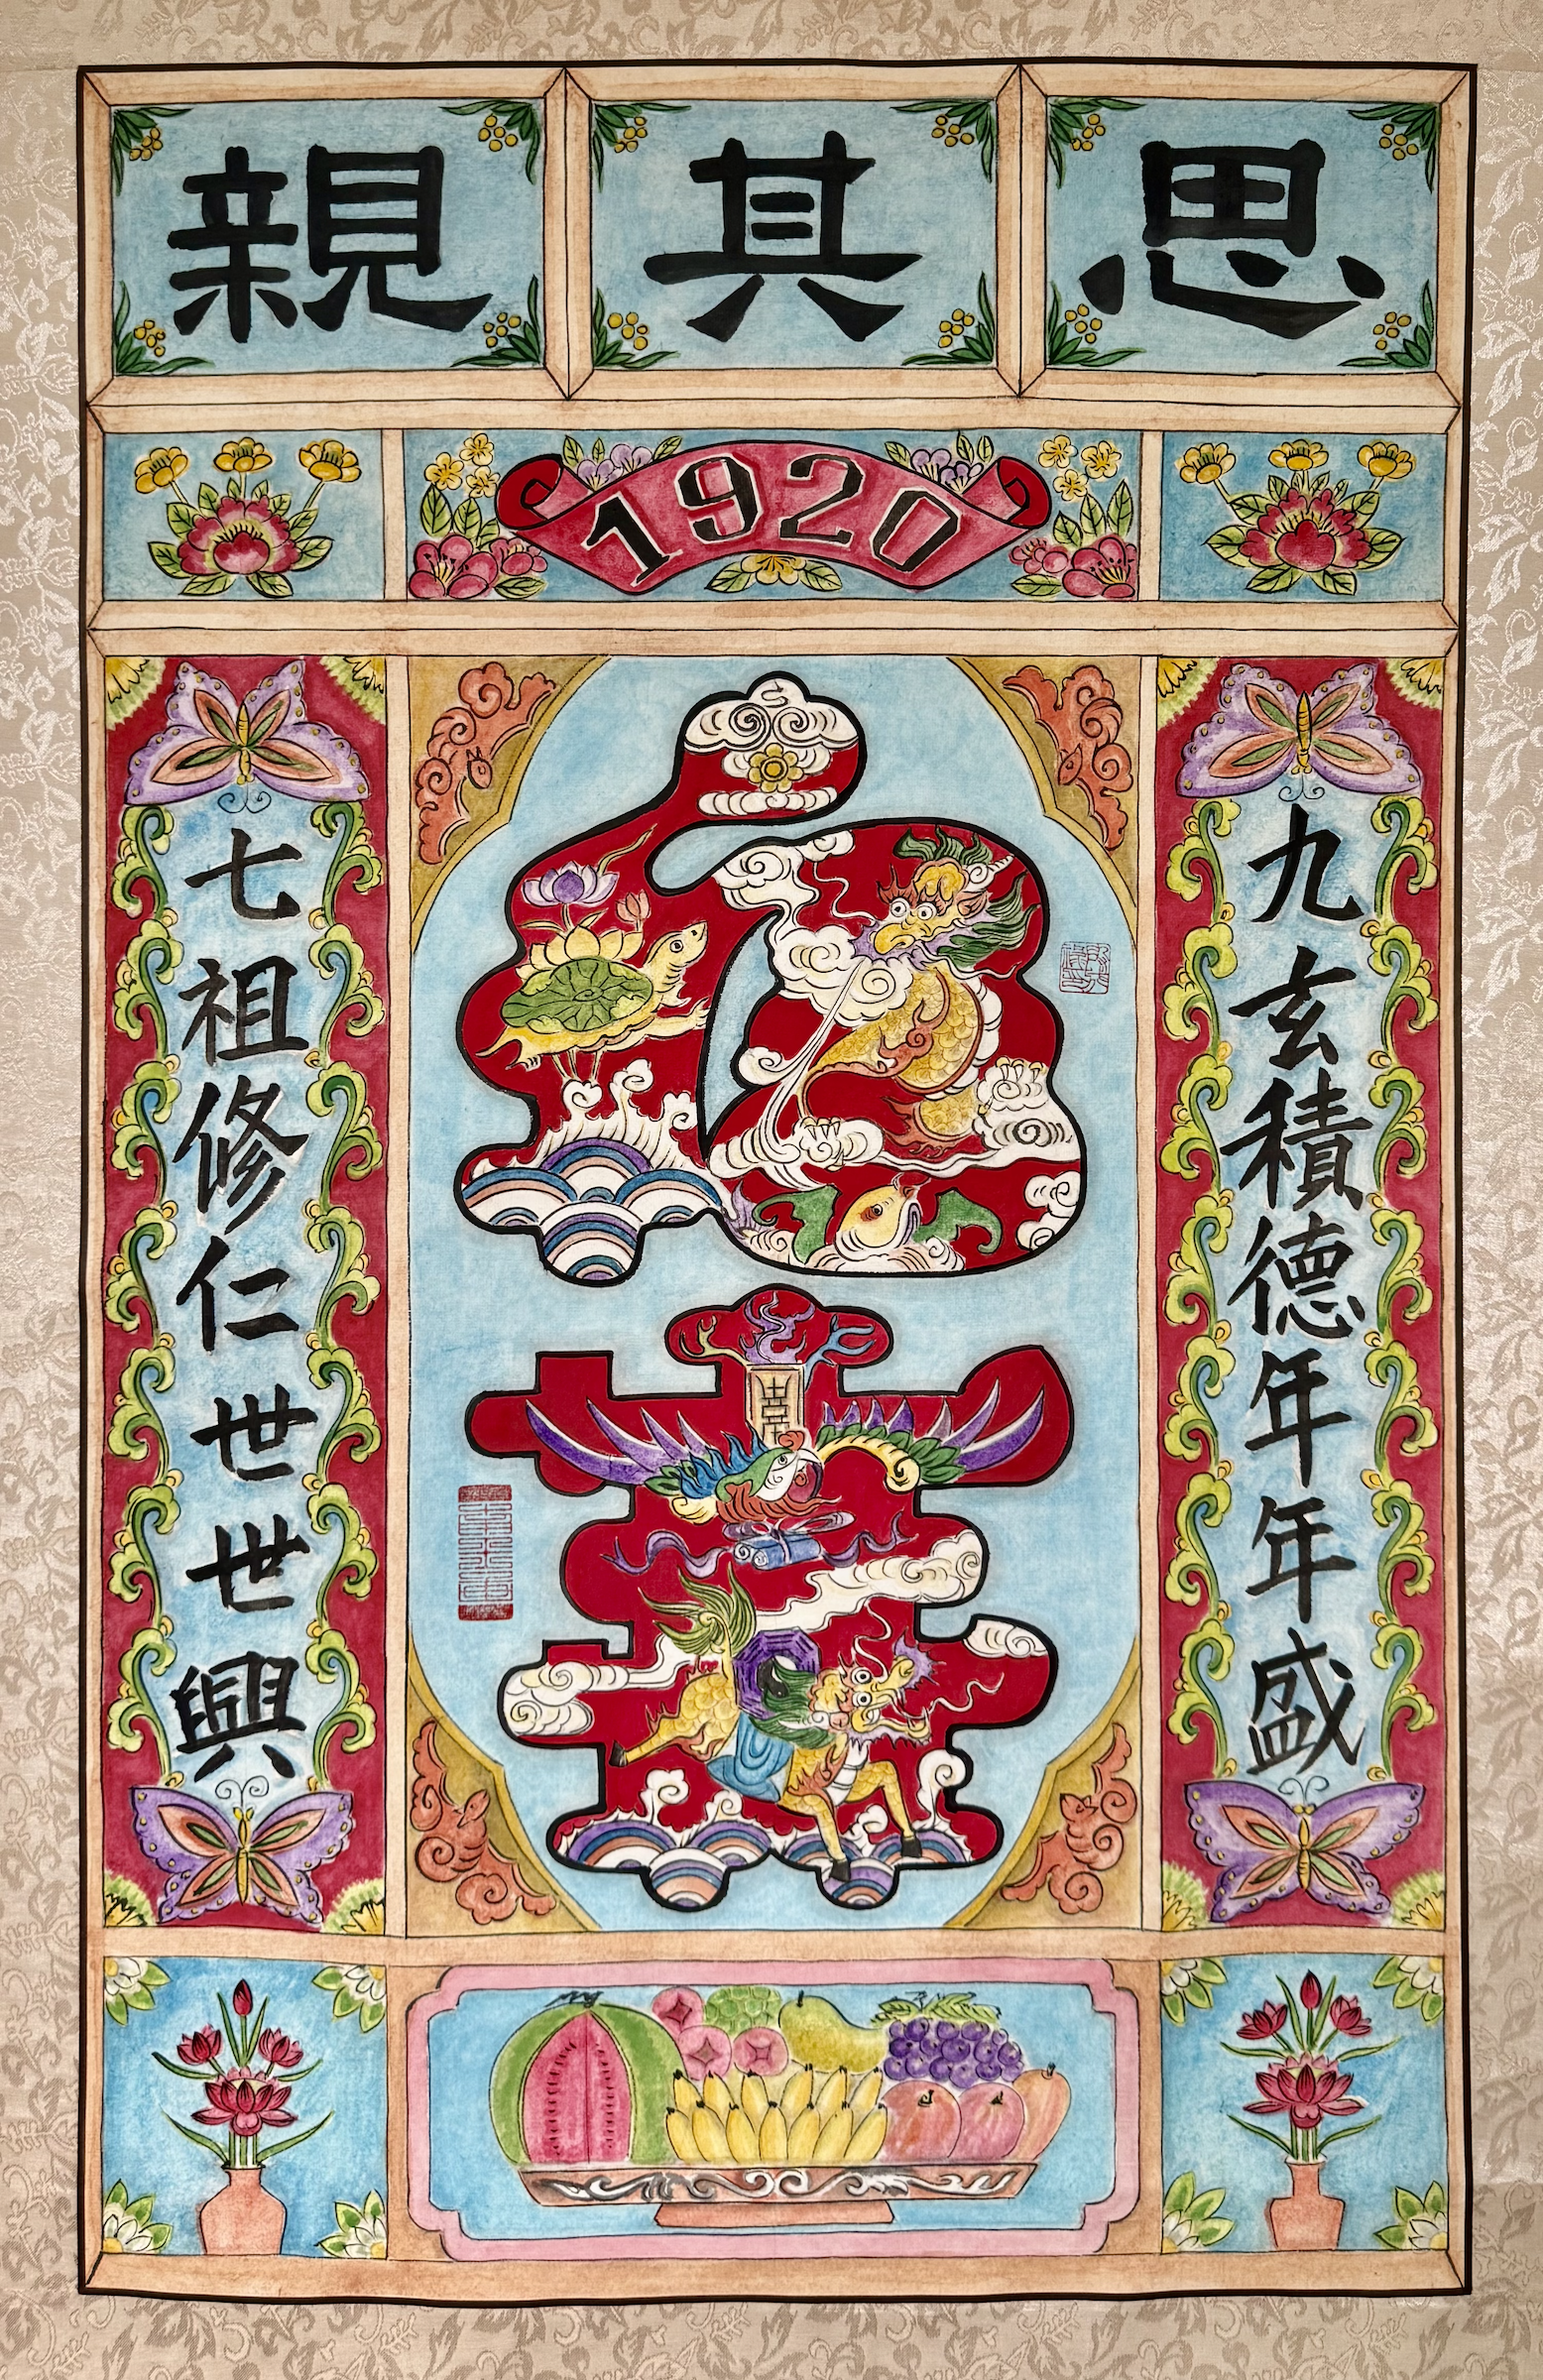 思其親
1920
九玄積德年年盛
七祖修仁世世興